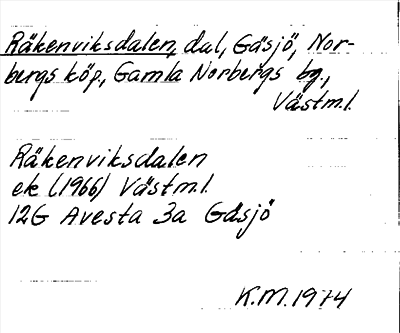 Räkenviksdalen, dal, Gåsjö, Nor-
bergs köp., Gamla Norbergs bg.,
Västml.
Räkenviksdalen
ek (1966) Västml.
12G Avesta 3a Gåsjö
K.M. 1974